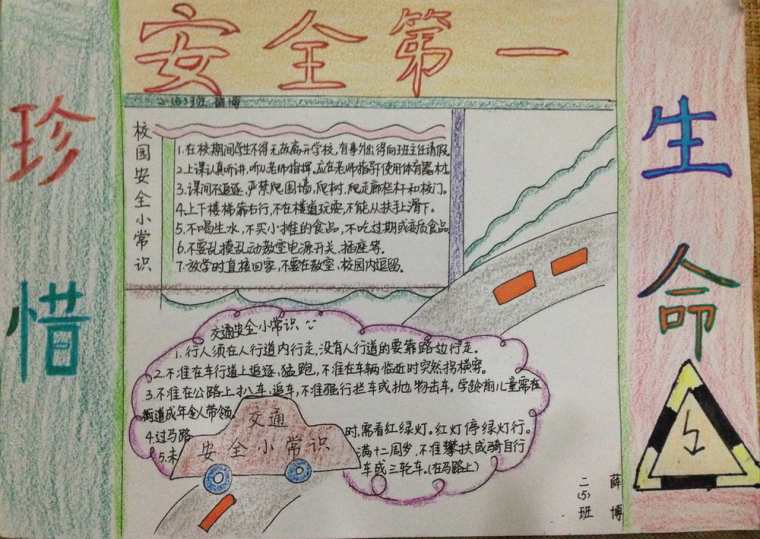 安全第一
珍惜
生命
二(5)班 薛博
校园安全小常识
1.在校期间学生不得无故离开学校,有事外出得向班主任请假
2.上课认真听讲,听从老师指挥,应在老师指导使用体育器材.
3.课间不追逐,严禁爬围墙,爬树,爬走廊栏杆和校门。
4.上下楼梯靠右行,不在楼道玩耍,不能从扶手上滑下。
5.不喝生水,不买小摊的食品,不吃过期或变质食品
6.不要乱摸乱动教室电源开关、插座等。
7.放学时直接回家,不要在教室,校园内逗留。
交通安全小常识
1.行人须在人行道内行走,没有人行道的要靠路边行走。
2.不准在车行道上追逐、猛跑,不准在车辆临近时突然拐横穿。
3.不准在公路上扒车、追车,不准强行拦车或抛物击车。学龄前儿童需在
街道成年人带领
4.过马路时,需看红绿灯。红灯停绿灯行。
5.未满十二周岁,不准攀扶或骑自行
车或三轮车。(在马路上)
交通
安全小常识
二(5)班
薛博